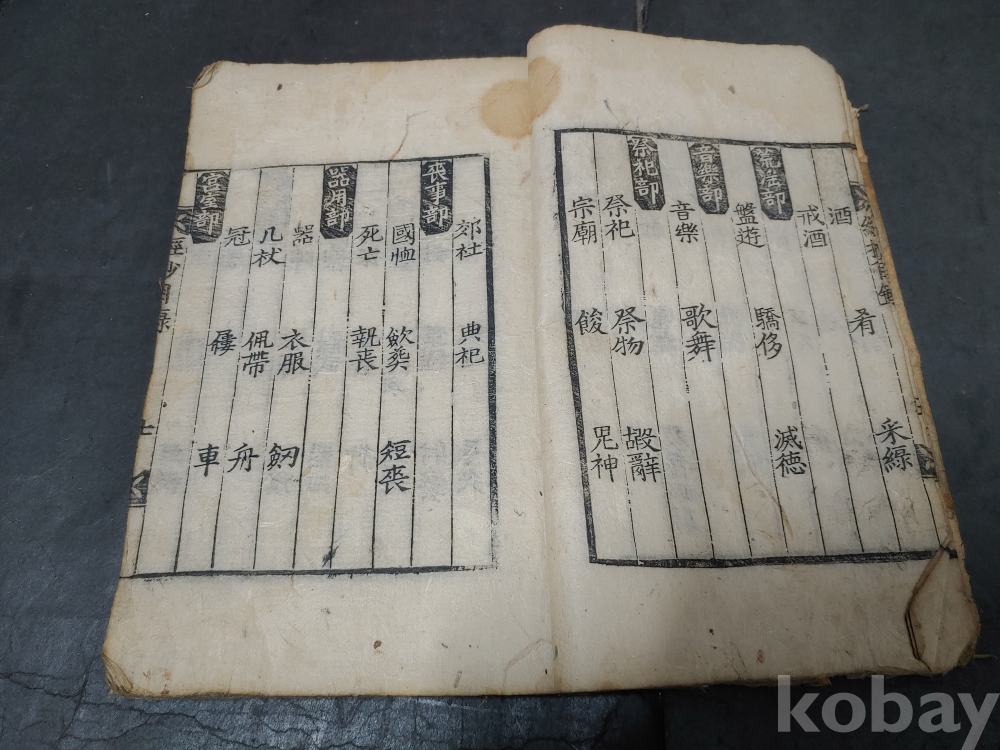 酒 肴 采綠
戒酒
盤遊 驕侈 滅德
音樂部
音樂 歌舞
祭祀部
祭祀 祭物 嘏辭
宗廟 餕 鬼神
郊社 典祀
喪事部
國恤 斂葬 短喪
死亡 執喪
器用部
器 衣服 劒
几杖 佩帶 舟
冠 屨 車
宮室部
kobay